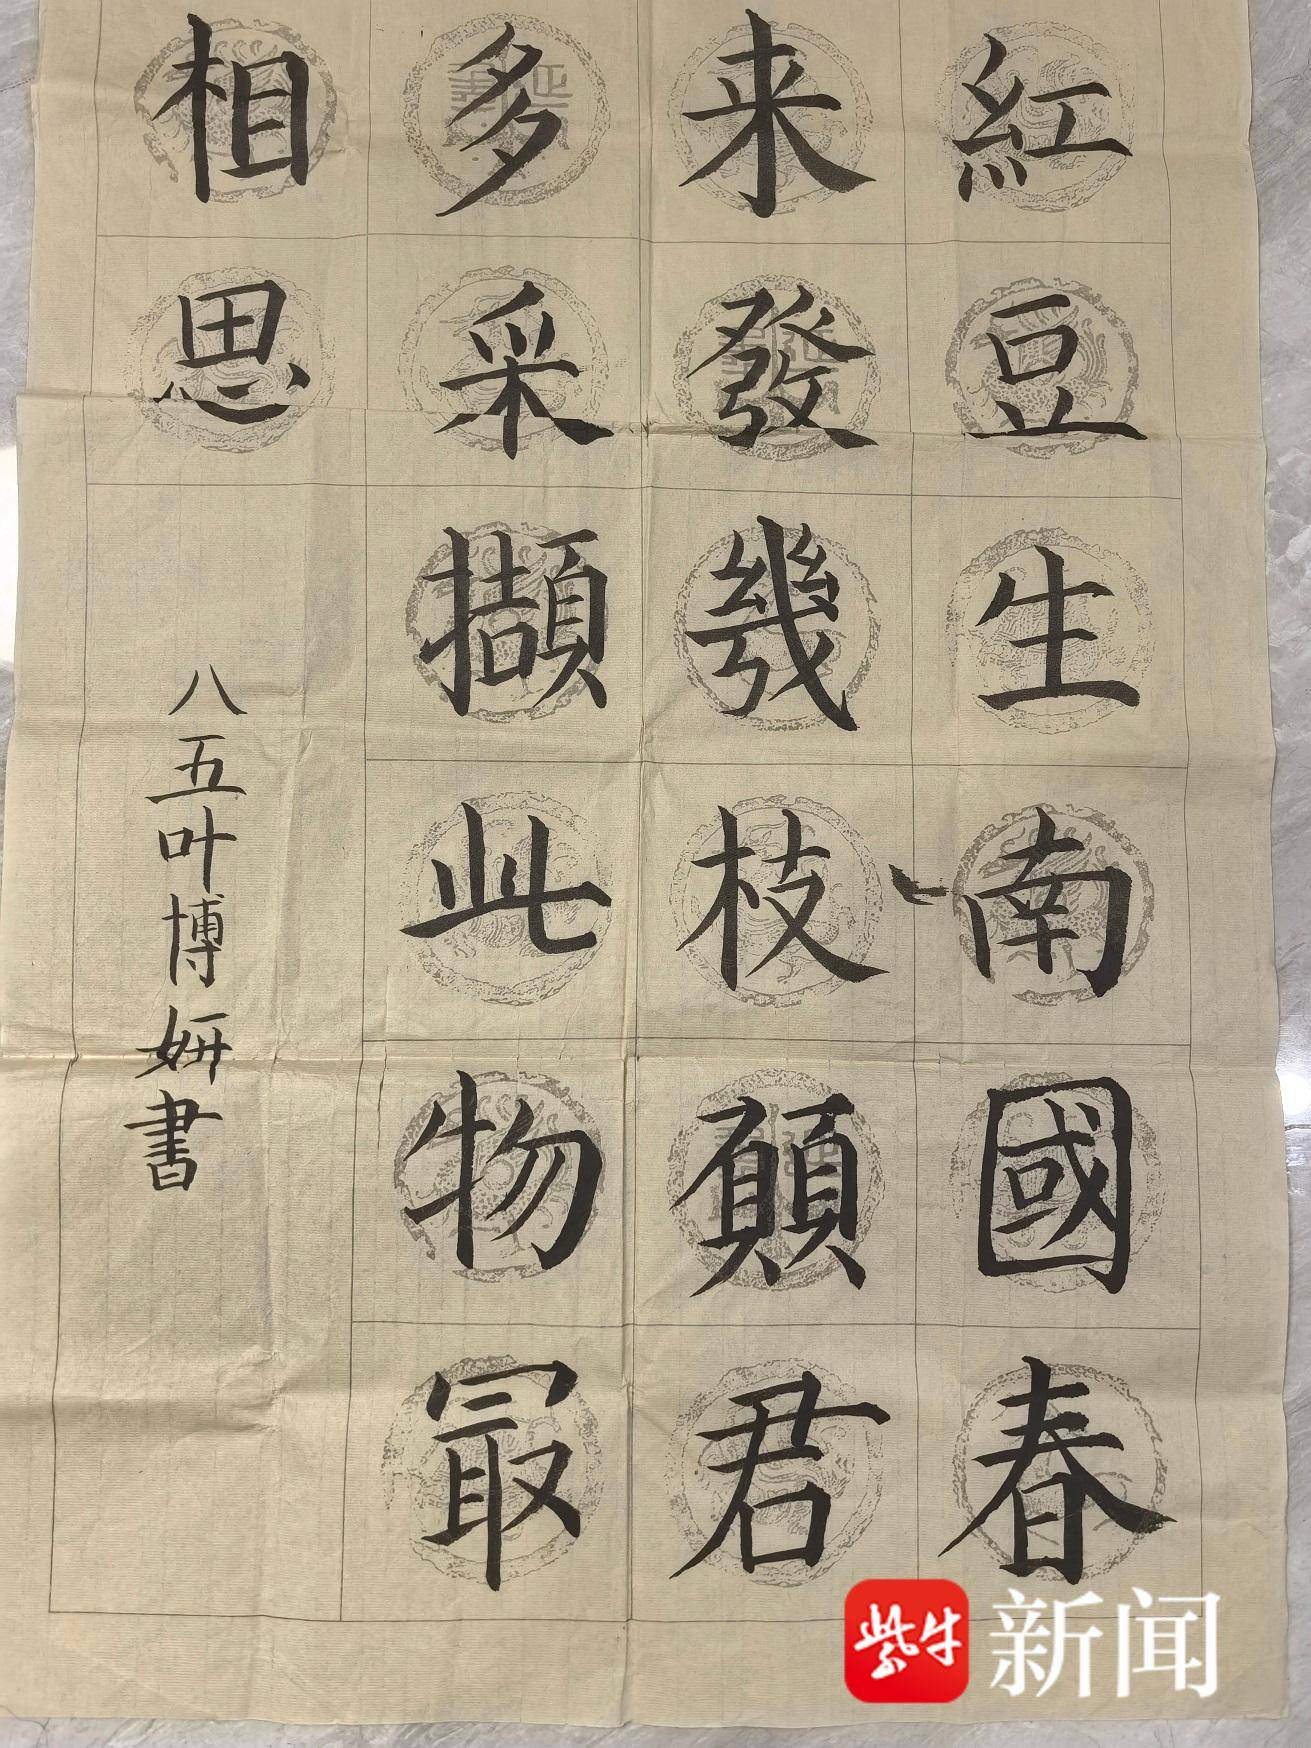 紅豆生南國春
来發幾枝願君
多采擷此物最
相思
八五叶博妍書
紫牛新闻